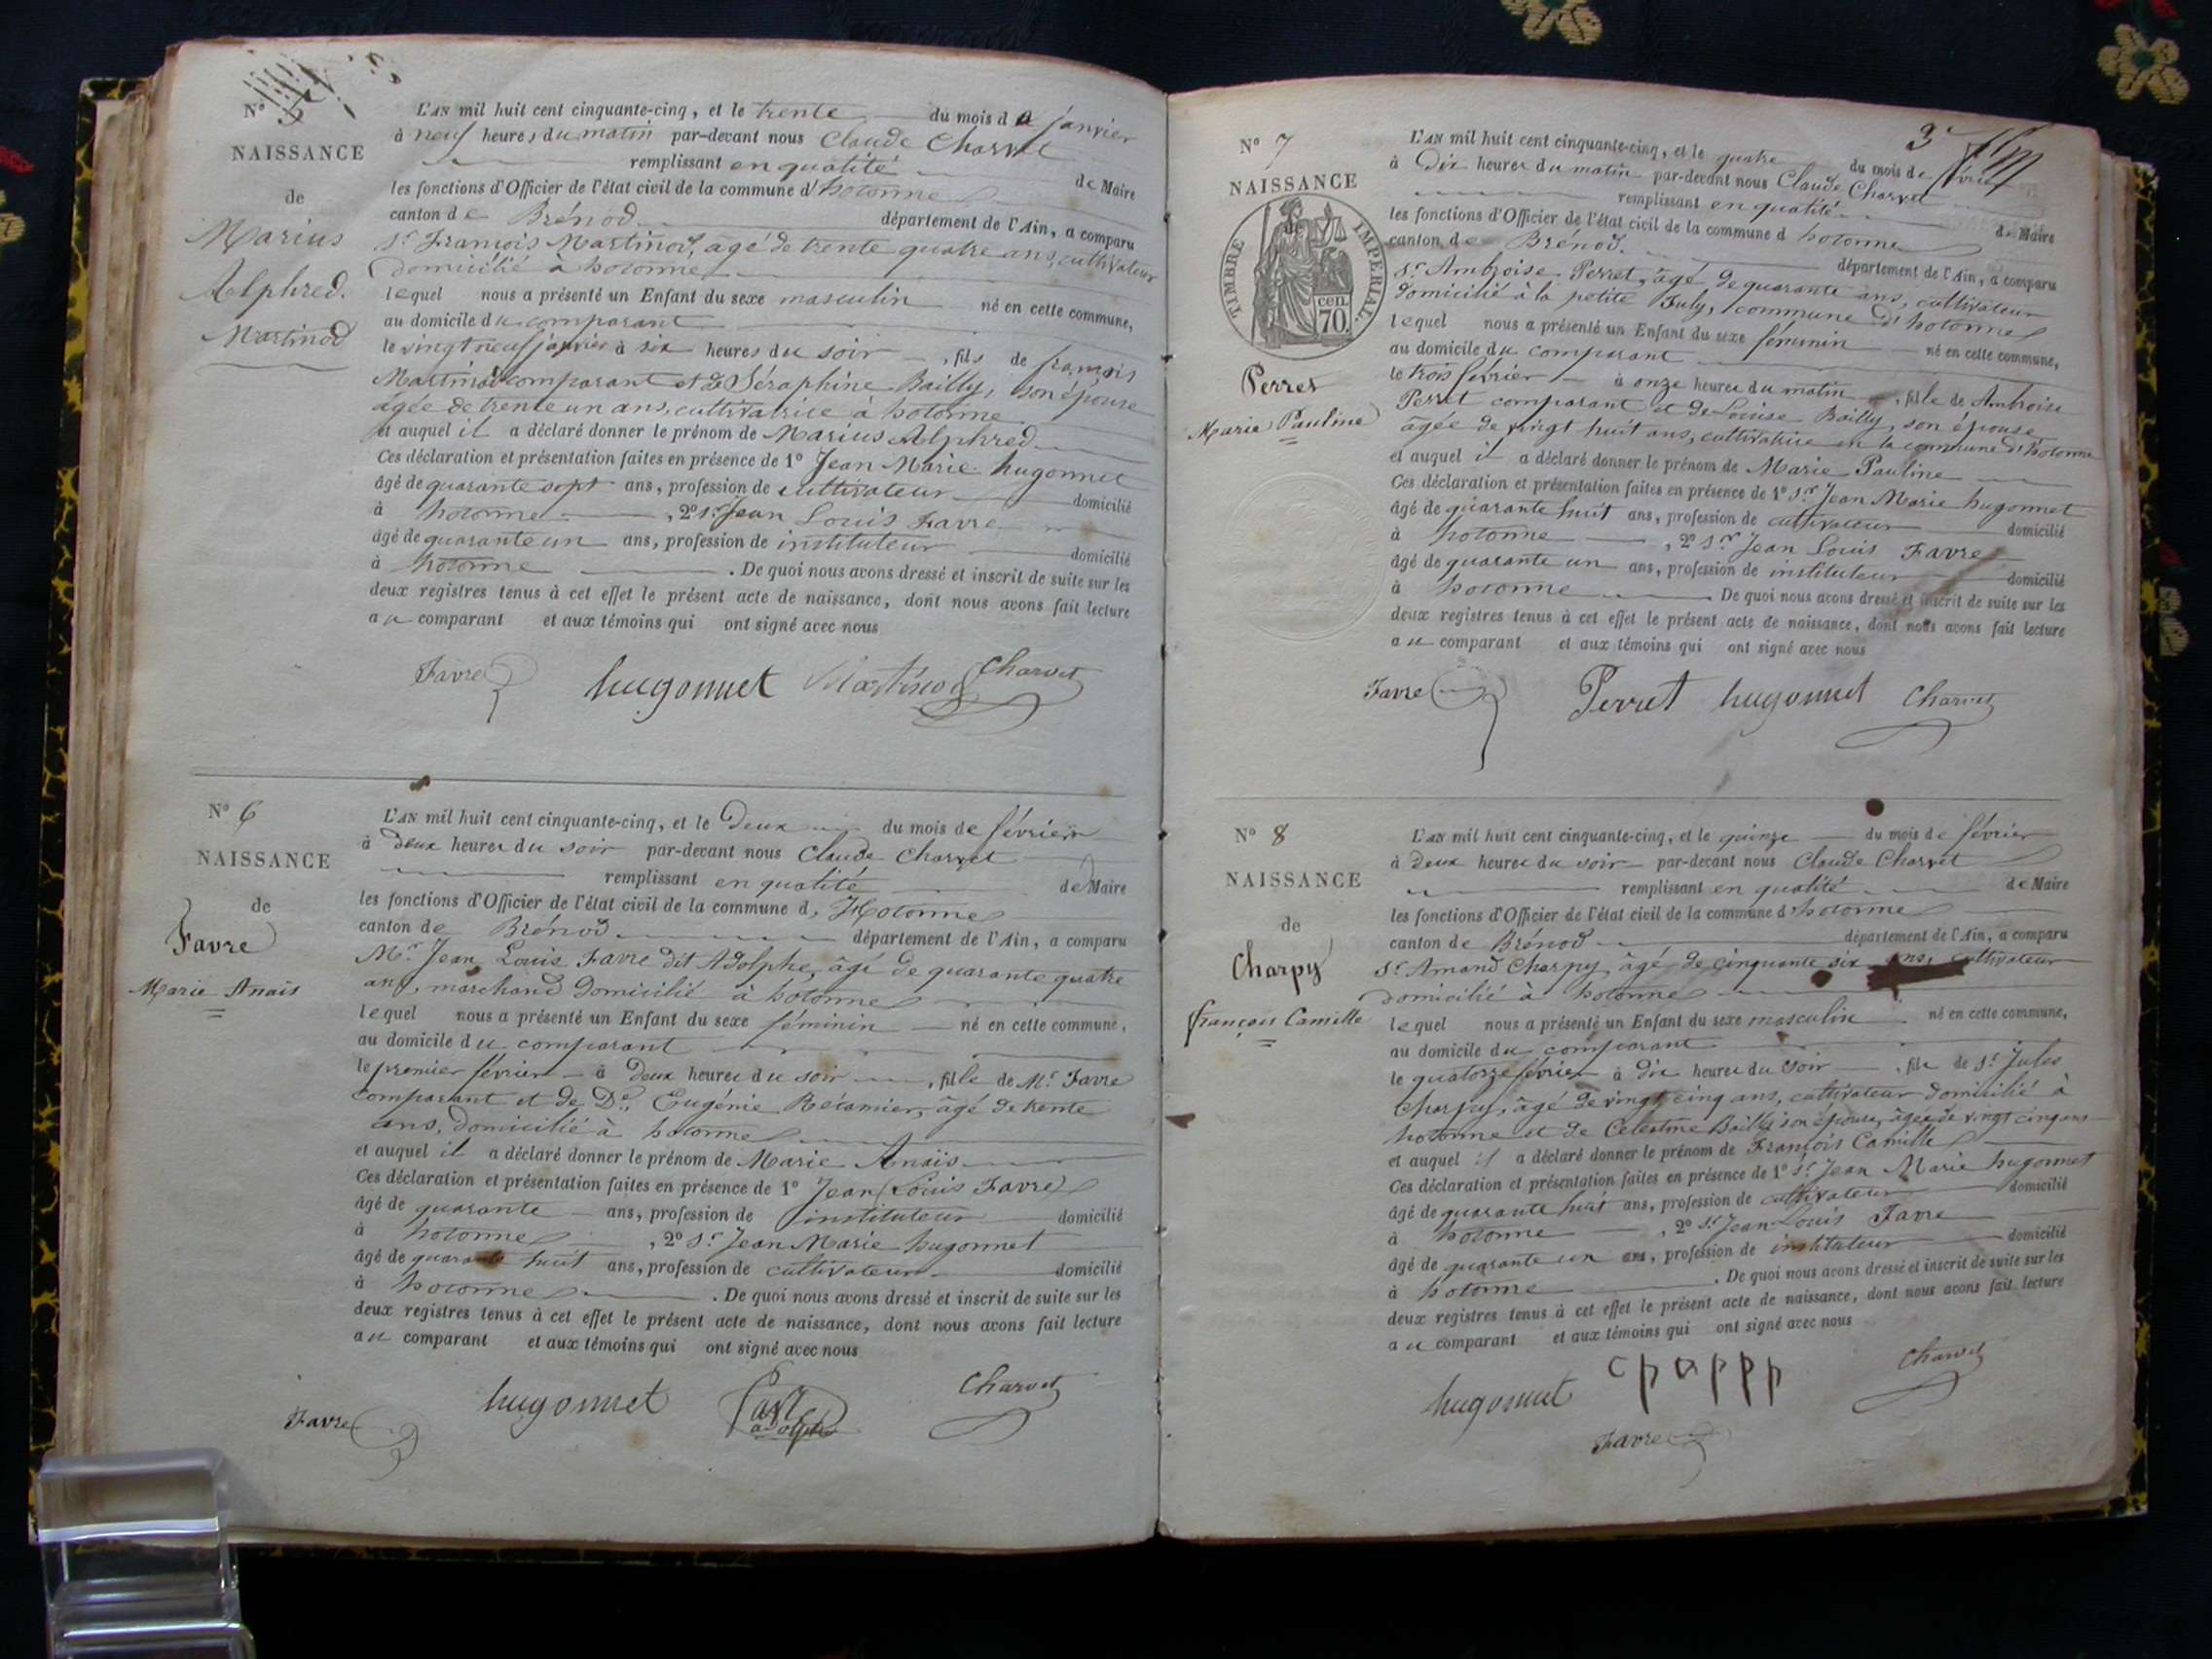 Nº 5
NAISSANCE
de
Marius
Alphred.
Martinod
L'AN mil huit cent cinquante-cinq, et le trente du mois de janvier
à neuf heures du matin par-devant nous Claude Charvet
remplissant en qualité de Maire
les fonctions d'Officier de l'état civil de la commune d'hotonne
canton de Brénod département de l'Ain, a comparu
Sr. François Martinod, âgé de trente quatre ans, cultivateur
domicilié à hotonne
lequel nous a présenté un Enfant du sexe masculin né en cette commune,
au domicile du comparant
le vingt neuf janvier à six heures du soir, fils de françois
Martinod comparant et de Séraphine Bailly, son épouse
âgée de trente un ans, cultivatrice à hotonne
et auquel il a déclaré donner le prénom de Marius Alphred
Ces déclaration et présentation faites en présence de 1º Jean Marie hugonnet
âgé de quarante sept ans, profession de cultivateur domicilié
à hotonne, 2º sr Jean Louis Favre
âgé de quarante un ans, profession de instituteur domicilié
à hotonne. De quoi nous avons dressé et inscrit de suite sur les
deux registres tenus à cet effet le présent acte de naissance, dont nous avons fait lecture
au comparant et aux témoins qui ont signé avec nous
Favre hugonnet Martinod Charvet
Nº 6
NAISSANCE
de
Favre
Marie Anaïs
L'AN mil huit cent cinquante-cinq, et le Deux du mois de février
à deux heures du soir par-devant nous Claude Charvet
remplissant en qualité de Maire
les fonctions d'Officier de l'état civil de la commune d'Hotonne
canton de Brénod département de l'Ain, a comparu
Mr. Jean Louis Favre dit Adolphe, âgé de quarante quatre
ans, marchand domicilié à hotonne
lequel nous a présenté un Enfant du sexe féminin né en cette commune,
au domicile du comparant
le premier février à deux heures du soir, fille de Mr. Favre
comparant et de De. Eugénie Récamier, âgé de trente
ans, domicilié à hotonne
et auquel il a déclaré donner le prénom de Marie Anaïs
Ces déclaration et présentation faites en présence de 1º Jean Louis Favre
âgé de quarante ans, profession de instituteur domicilié
à hotonne, 2º sr Jean Marie hugonnet
âgé de quarante huit ans, profession de cultivateur domicilié
à hotonne. De quoi nous avons dressé et inscrit de suite sur les
deux registres tenus à cet effet le présent acte de naissance, dont nous avons fait lecture
au comparant et aux témoins qui ont signé avec nous
Favre hugonnet adolphe Charvet
3
Nº 7
NAISSANCE
de
TIMBRE IMPERIAL.
70. cen.
Perret
Marie Pauline
L'AN mil huit cent cinquante-cinq, et le quatre du mois de février
à Dix heures du matin par-devant nous Claude Charvet
remplissant en qualité de Maire
les fonctions d'Officier de l'état civil de la commune d hotonne
canton de Brénod département de l'Ain, a comparu
Sr. Ambroise Perret, âgé de quarante ans, cultivateur
domicilié à la petite July, commune d'hotonne
lequel nous a présenté un Enfant du sexe féminin né en cette commune,
au domicile du comparant
le trois février à onze heures du matin, fille de Ambroise
Perret comparant et de Louise Bailly, son épouse
âgée de vingt huit ans, cultivatrice en la commune d'hotonne
et auquel il a déclaré donner le prénom de Marie Pauline
Ces déclaration et présentation faites en présence de 1º sr. Jean Marie hugonnet
âgé de quarante huit ans, profession de cultivateur domicilié
à hotonne, 2º sr Jean Louis Favre
âgé de quarante un ans, profession de instituteur domicilié
à hotonne. De quoi nous avons dressé et inscrit de suite sur les
deux registres tenus à cet effet le présent acte de naissance, dont nous avons fait lecture
au comparant et aux témoins qui ont signé avec nous
Favre Perret hugonnet Charvet
Nº 8
NAISSANCE
de
Charpy
françois Camille
L'AN mil huit cent cinquante-cinq, et le quinze du mois de février
à deux heures du soir par-devant nous Claude Charvet
remplissant en qualité de Maire
les fonctions d'Officier de l'état civil de la commune d'hotonne
canton de Brénod département de l'Ain, a comparu
Sr. Amand Charpy, âgé de cinquante six ans, cultivateur
domicilié à hotonne
lequel nous a présenté un Enfant du sexe masculin né en cette commune,
au domicile du comparant
le quatorze février à dix heures du soir, fils de Sr. Jules
Charpy, âgé de vingt cinq ans, cultivateur domicilié à
hotonne et de Celestine Bailly son épouse, âgée de vingt cinq ans
et auquel il a déclaré donner le prénom de François Camille
Ces déclaration et présentation faites en présence de 1º sr. Jean Marie hugonnet
âgé de quarante huit ans, profession de cultivateur domicilié
à hotonne, 2º sr Jean Louis Favre
âgé de quarante un ans, profession de instituteur domicilié
à hotonne. De quoi nous avons dressé et inscrit de suite sur les
deux registres tenus à cet effet le présent acte de naissance, dont nous avons fait lecture
au comparant et aux témoins qui ont signé avec nous
hugonnet Charvet
Favre